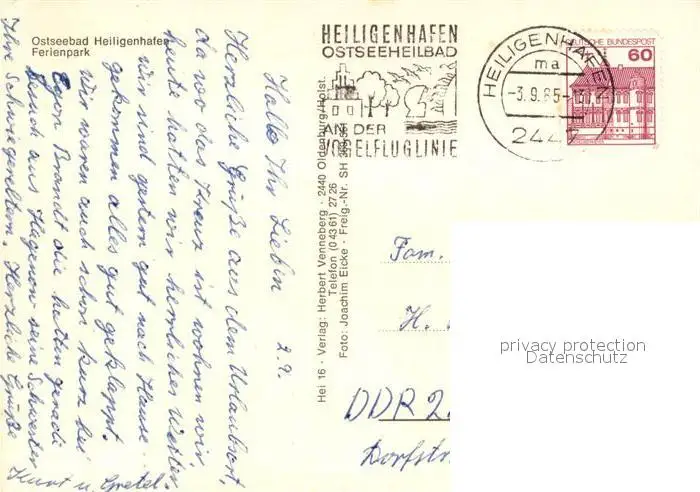 Ostseebad Heiligenhafen
Ferienpark
HEILIGENHAFEN
OSTSEEHEILBAD
AN DER
VOGELFLUGLINIE
HEILIGENHAFEN
ma
-3.9.85-
2447
DEUTSCHE BUNDESPOST
60
Hallo Ihr Lieben 2.9.
Herzliche Grüße aus dem Urlaubsort,
da wo das Kreuz ist wohnen wir
heute hatten wir herrliches Wetter
wir sind gestern gut nach Hause
gekommen alles gut geklappt.
Wir waren auch schon kurz bei
Egon Brandt die hatten gerade
Besuch aus Hagenow seine Schwester
Ihre Schwiegereltern. Herzliche Grüße
Kurt u. Gretel.
Hei 16 · Verlag: Herbert Venneberg · 2440 Oldenburg/Holst.
Telefon (0 43 61) 27 26
Foto: Joachim Eicke · Freig.-Nr. SH
Fam.
H.
DDR 2
Dorfstr
privacy protection
Datenschutz